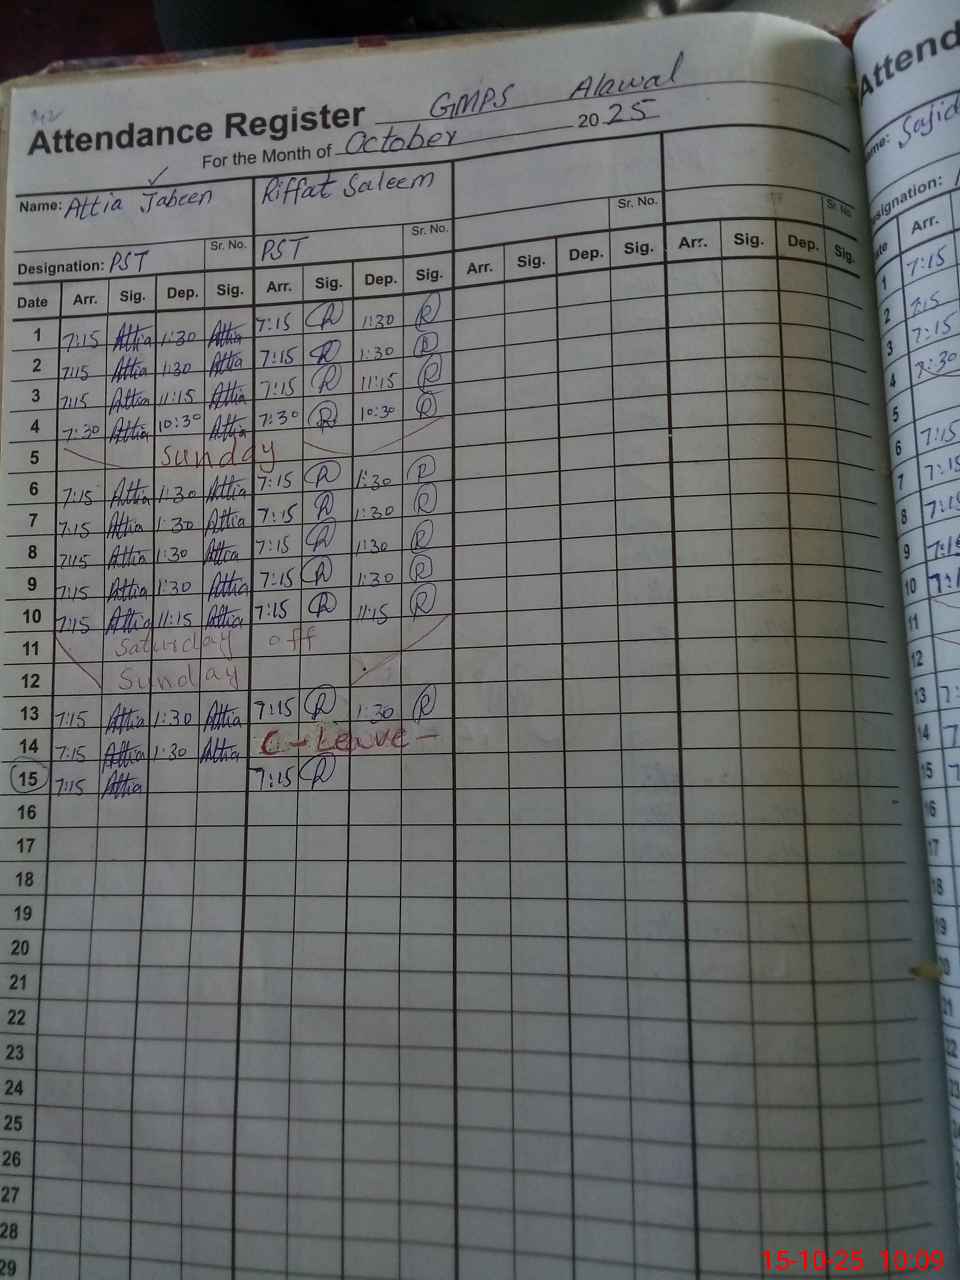 Attendance Register GMPS Alawal
For the Month of October 20 25
Name: Attia Jabeen Riffat Saleem
Sr. No. Sr. No. Sr. No. Sr. No.
Designation: PST PST
Date Arr. Sig. Dep. Sig. Arr. Sig. Dep. Sig. Arr. Sig. Dep. Sig. Arr. Sig. Dep. Sig.
1 7:15 Attia 1:30 Attia 7:15 R 1:30 R
2 7:15 Attia 1:30 Attia 7:15 R 1:30 R
3 7:15 Attia 11:15 Attia 7:15 R 11:15 R
4 7:30 Attia 10:30 Attia 7:30 R 10:30 R
5 Sunday
6 7:15 Attia 1:30 Attia 7:15 R 1:30 R
7 7:15 Attia 1:30 Attia 7:15 R 1:30 R
8 7:15 Attia 1:30 Attia 7:15 R 1:30 R
9 7:15 Attia 1:30 Attia 7:15 R 1:30 R
10 7:15 Attia 11:15 Attia 7:15 R 11:15 R
11 Saturday off
12 Sunday
13 7:15 Attia 1:30 Attia 7:15 R 1:30 R
14 7:15 Attia 1:30 Attia C-Leave-
15 7:15 Attia 7:15 R
16
17
18
19
20
21
22
23
24
25
26
27
28
29
Attend
Sajid
Arr.
1 7:15
2 7:15
3 7:15
4 7:30
5
6 7:15
7 7:15
8 7:15
9 7:15
10
11
12
13
14
15
15-10-25 10:09